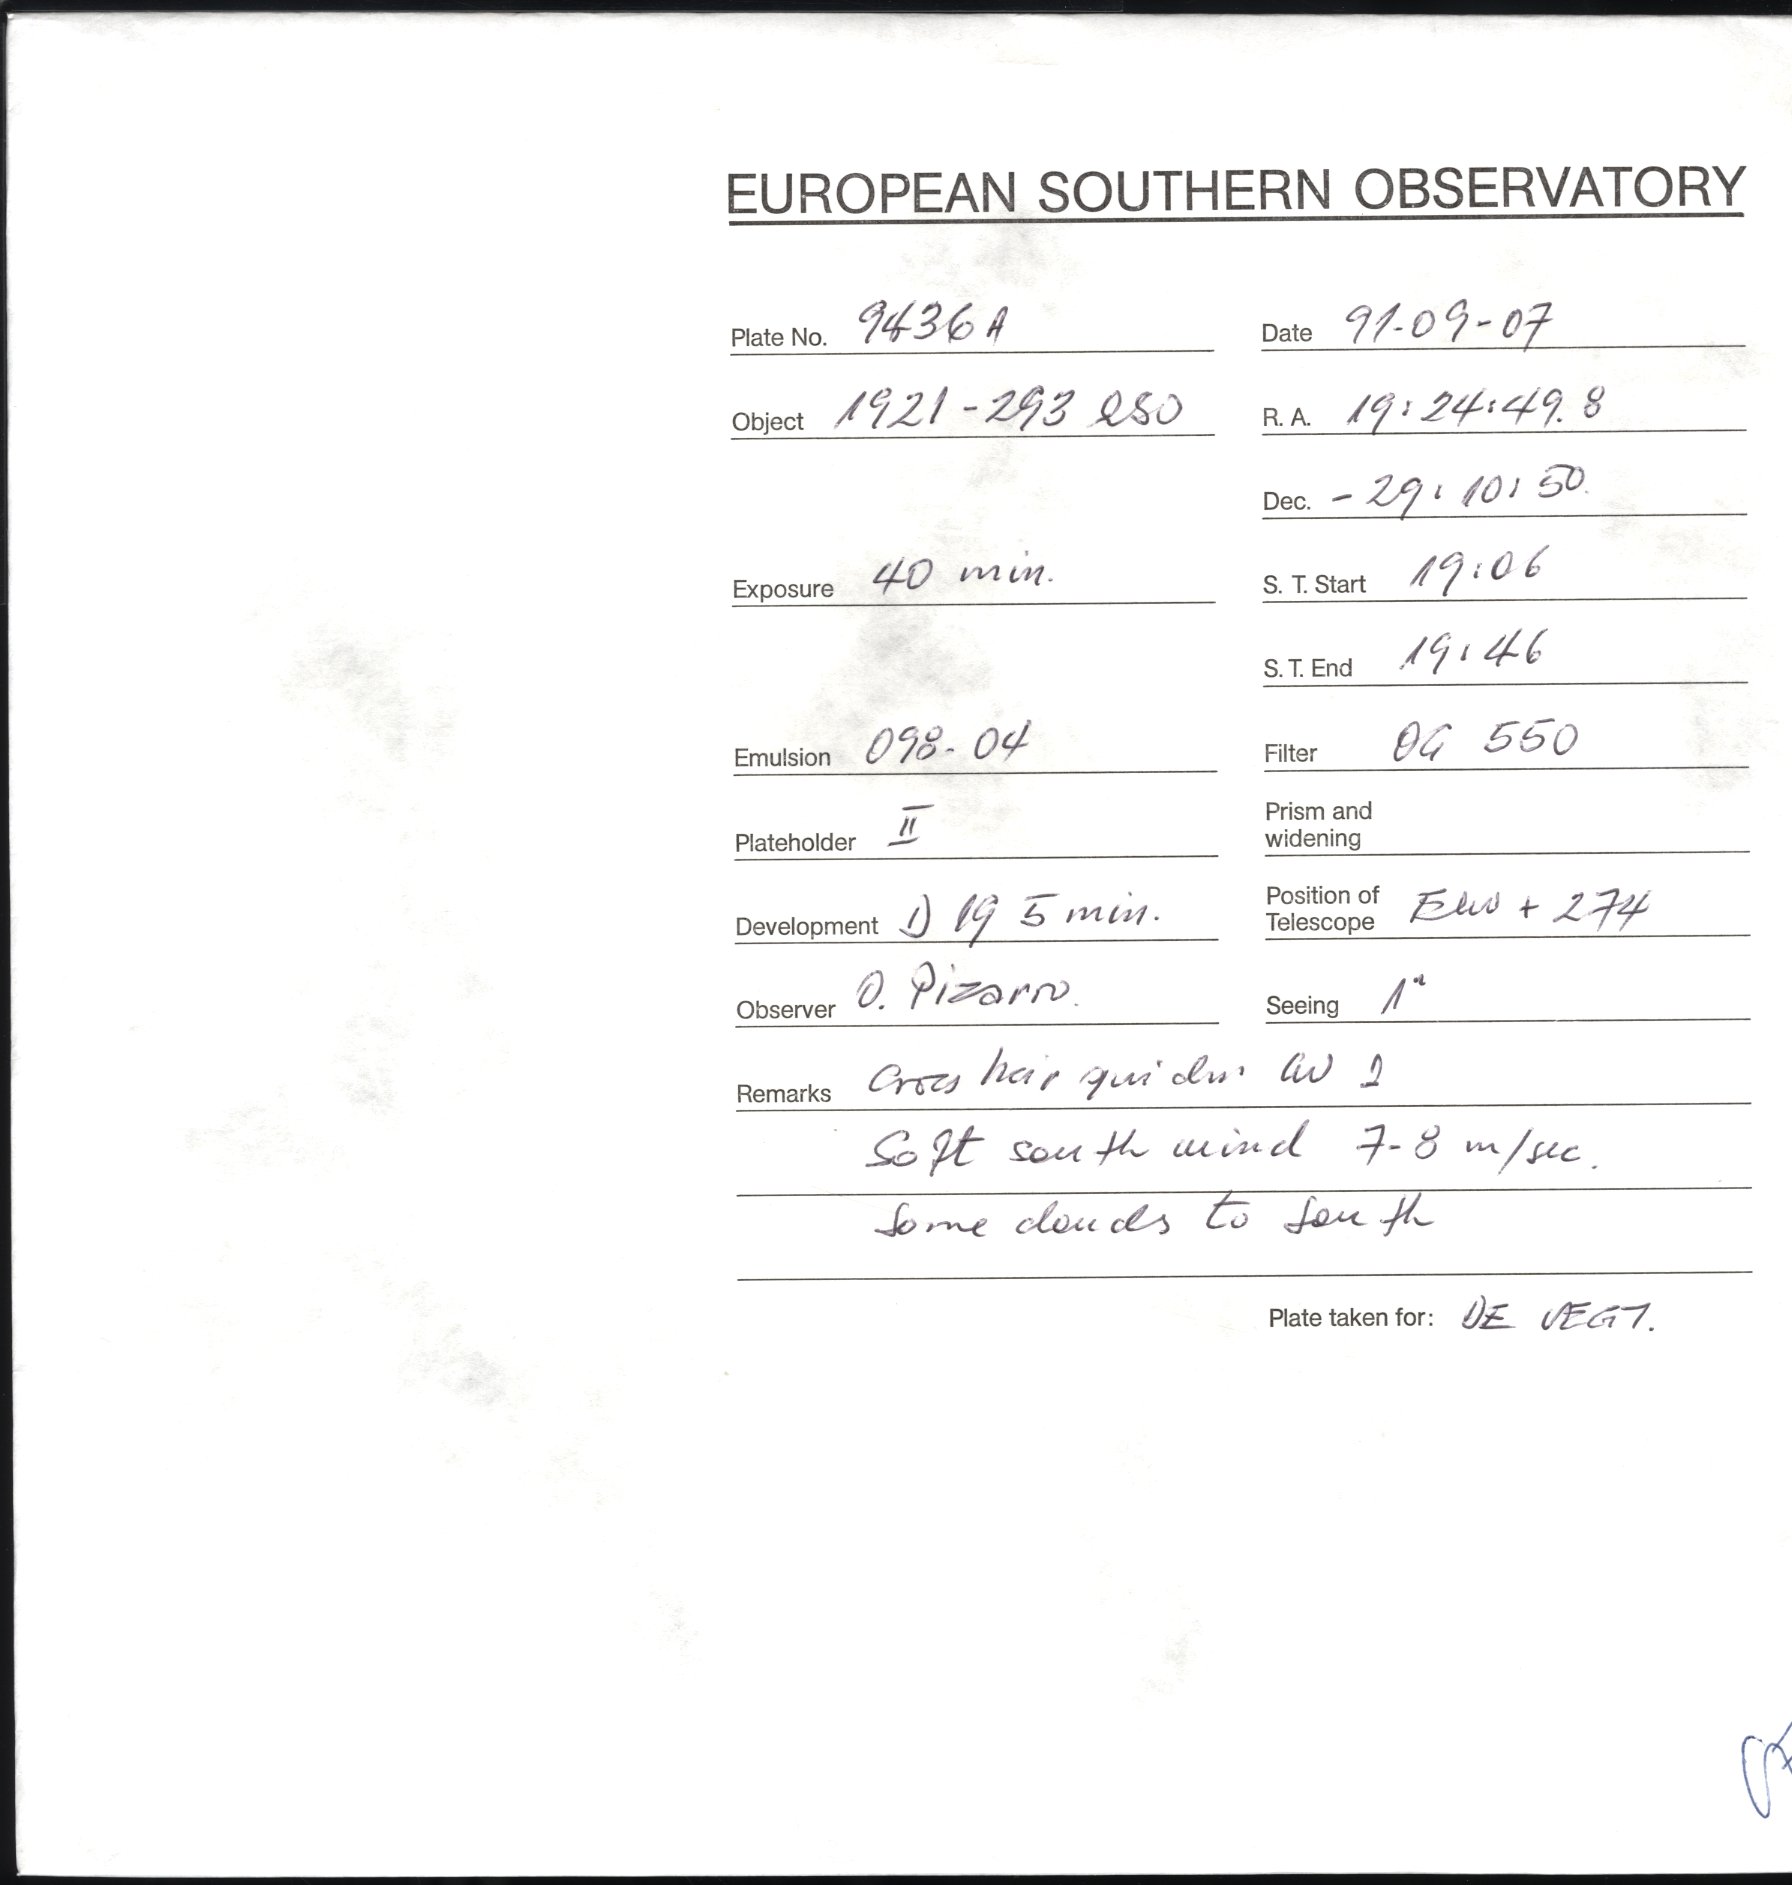 EUROPEAN SOUTHERN OBSERVATORY
Plate No. 9436A Date 91-09-07
Object 1921-293 QSO R. A. 19:24:49.8
Dec. -29:10:50
Exposure 40 min. S. T. Start 19:06
S. T. End 19:46
Emulsion 098-04 Filter OG 550
Plateholder II Prism and
widening
Development 1) 19 5 min. Position of
Telescope + 274
Observer O. Pizarro. Seeing 1"
Remarks Cross hair
Soft south wind 7-8 m/sec.
Some clouds to south
Plate taken for: DE VEGT.